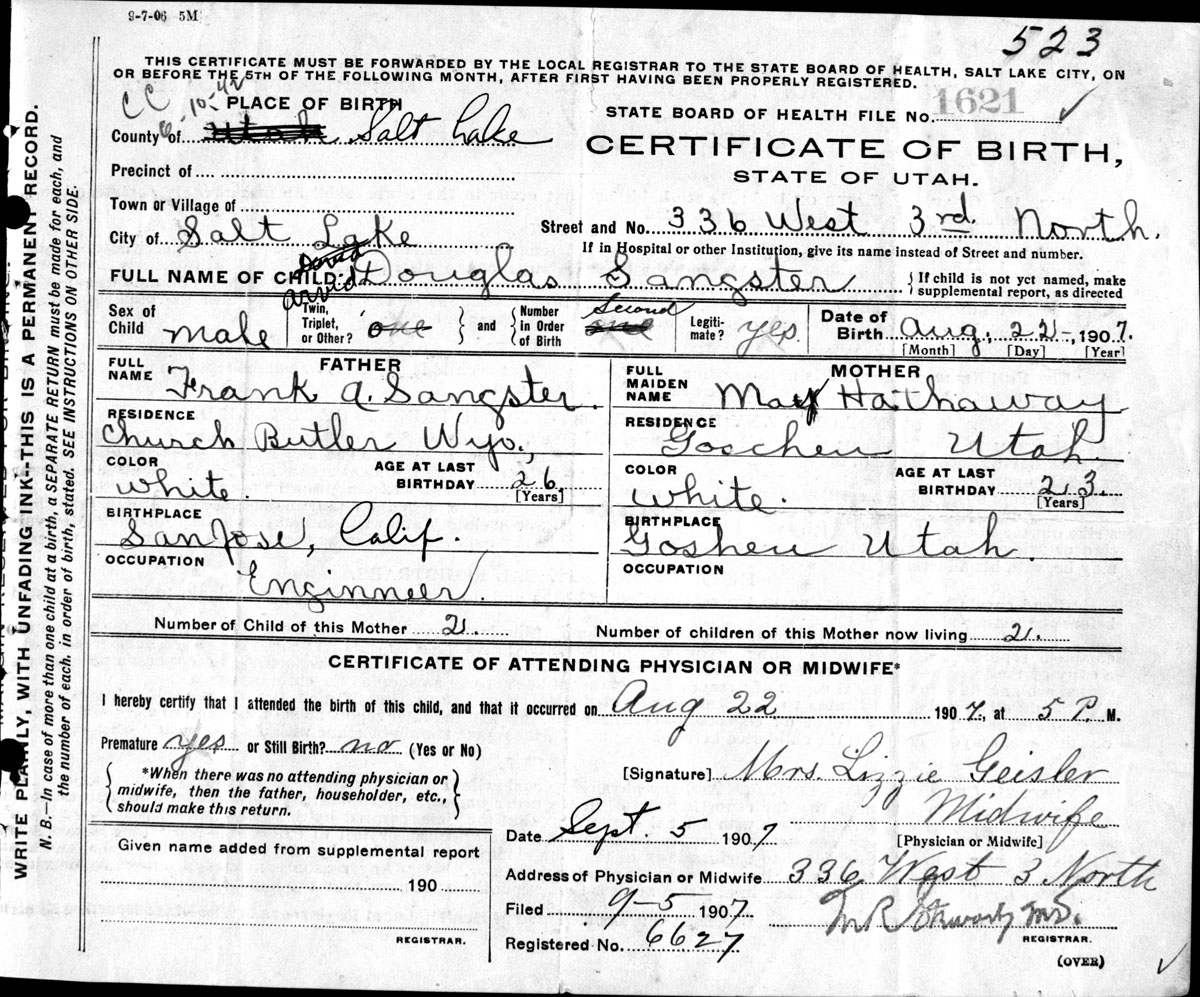 9-7-06 5M
523
THIS CERTIFICATE MUST BE FORWARDED BY THE LOCAL REGISTRAR TO THE STATE BOARD OF HEALTH, SALT LAKE CITY, ON
OR BEFORE THE 5TH OF THE FOLLOWING MONTH, AFTER FIRST HAVING BEEN PROPERLY REGISTERED.
CC 6-10-42
PLACE OF BIRTH
STATE BOARD OF HEALTH FILE No. 1621
County of Utah Salt Lake
CERTIFICATE OF BIRTH,
STATE OF UTAH.
Precinct of
Town or Village of
Street and No. 336 West 3rd. North.
City of Salt Lake
If in Hospital or other Institution, give its name instead of Street and number.
FULL NAME OF CHILD Arvid Douglas Sangster
If child is not yet named, make supplemental report, as directed
Sex of Child male Twin, Triplet, or Other? one and Number in Order of Birth one Second Legiti-mate? yes. Date of Birth Aug. 22, 1907.
[Month] [Day] [Year]
FATHER
FULL NAME Frank A. Sangster.
RESIDENCE
Church Butler Wyo.,
COLOR white. AGE AT LAST BIRTHDAY 26
[Years]
BIRTHPLACE
San Jose, Calif.
OCCUPATION
Enginneer.
MOTHER
FULL MAIDEN NAME May Hathaway
RESIDENCE
Goschen Utah.
COLOR white. AGE AT LAST BIRTHDAY 23.
[Years]
BIRTHPLACE
Goshen Utah.
OCCUPATION
Number of Child of this Mother 2. Number of children of this Mother now living 2.
CERTIFICATE OF ATTENDING PHYSICIAN OR MIDWIFE*
I hereby certify that I attended the birth of this child, and that it occurred on Aug 22 1907, at 5 P. M.
Premature yes or Still Birth? no (Yes or No)
*When there was no attending physician or
midwife, then the father, householder, etc.,
should make this return.
[Signature] Mrs. Lizzie Geisler
Midwife
[Physician or Midwife]
Date Sept 5 1907
Address of Physician or Midwife 336 West 3 North
Filed 9-5 1907
Registered No. 6627
REGISTRAR.
(OVER)
Given name added from supplemental report
190
REGISTRAR.
WRITE PLAINLY, WITH UNFADING INK--THIS IS A PERMANENT RECORD.
N. B.—In case of more than one child at a birth, a SEPARATE RETURN must be made for each, and
the number of each, in order of birth, stated. SEE INSTRUCTIONS ON OTHER SIDE.